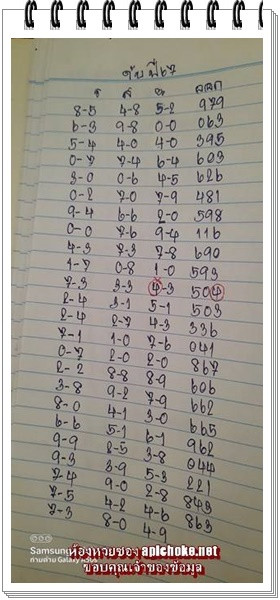 ปี67
8-5 4-8 5-2 979
6-3 9-8 0-0 063
5-4 4-0 4-0 395
0-7 7-4 6-4 603
3-0 0-6 4-5 626
0-2 7-0 7-9 481
9-4 6-6 2-0 598
0-0 7-6 9-4 116
4-3 7-3 7-8 690
1-7 0-8 1-0 593
7-3 3-3 4-3 504
2-4 3-1 5-1 503
2-4 2-7 4-3 336
7-1 1-0 7-6 041
0-7 2-0 2-0 867
2-2 8-8 8-9 606
3-8 9-2 7-9 662
8-0 4-1 3-0 665
6-6 5-1 6-1 962
9-9 2-5 3-8 044
9-3 3-9 5-3 221
7-4 9-0 2-8 843
7-5 4-2 4-6 863
7-3 8-0 4-9
Samsung
ถ่ายด้วย Galaxy A30s
ห้องหวยซอง apichoke.net
ขอบคุณเจ้าของข้อมูล